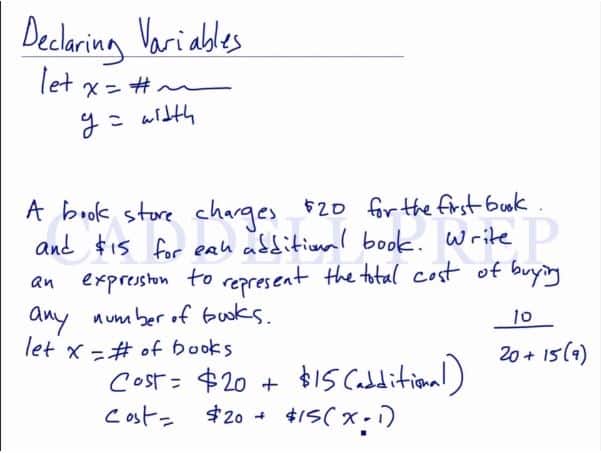 Declaring Variables
let x = #
y = width
A book store charges $20 for the first book.
and $15 for each additional book. Write
an expression to represent the total cost of buying
any number of books.
let x = # of books
Cost = $20 + $15 (additional)
Cost = $20 + $15(x - 1)
10
20 + 15(9)
CADDELL PREP